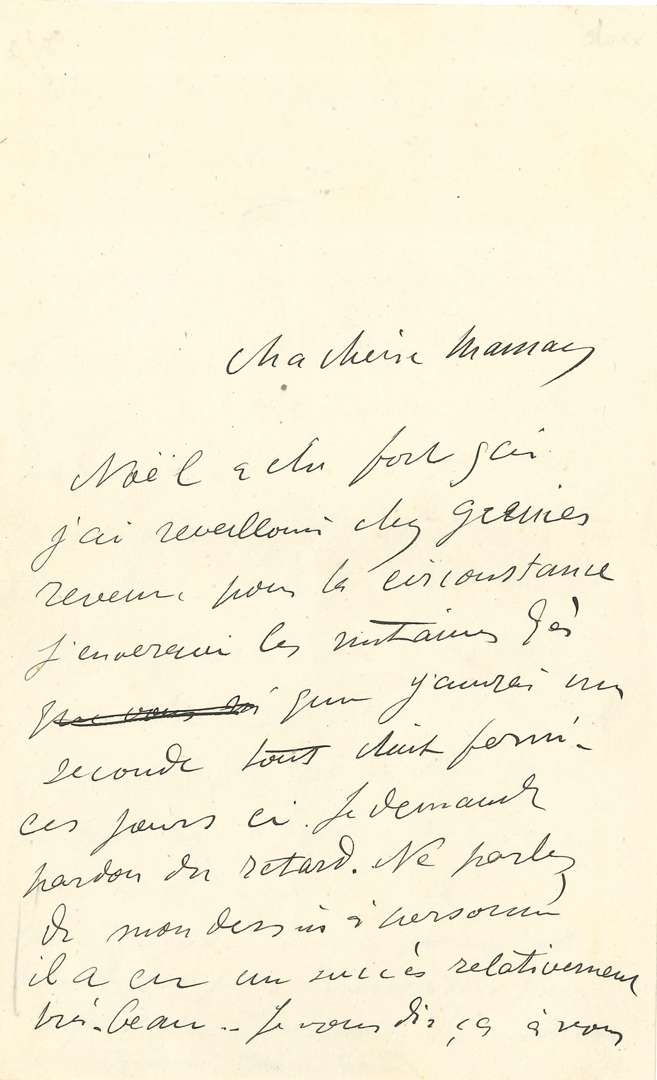 Ma chère Maman
Noël a été fort gai
j'ai reveilloné chez Grenier
revenu pour la circonstance
J'enverrai les mitaines dès
que vous que j'aurai une
seconde tout était fermé
ces jours ci. Je demande
pardon du retard. Ne parlez
de mon dessin à personne
il a eu un succès relativement
très-beau -- Je vous dis ça à vous